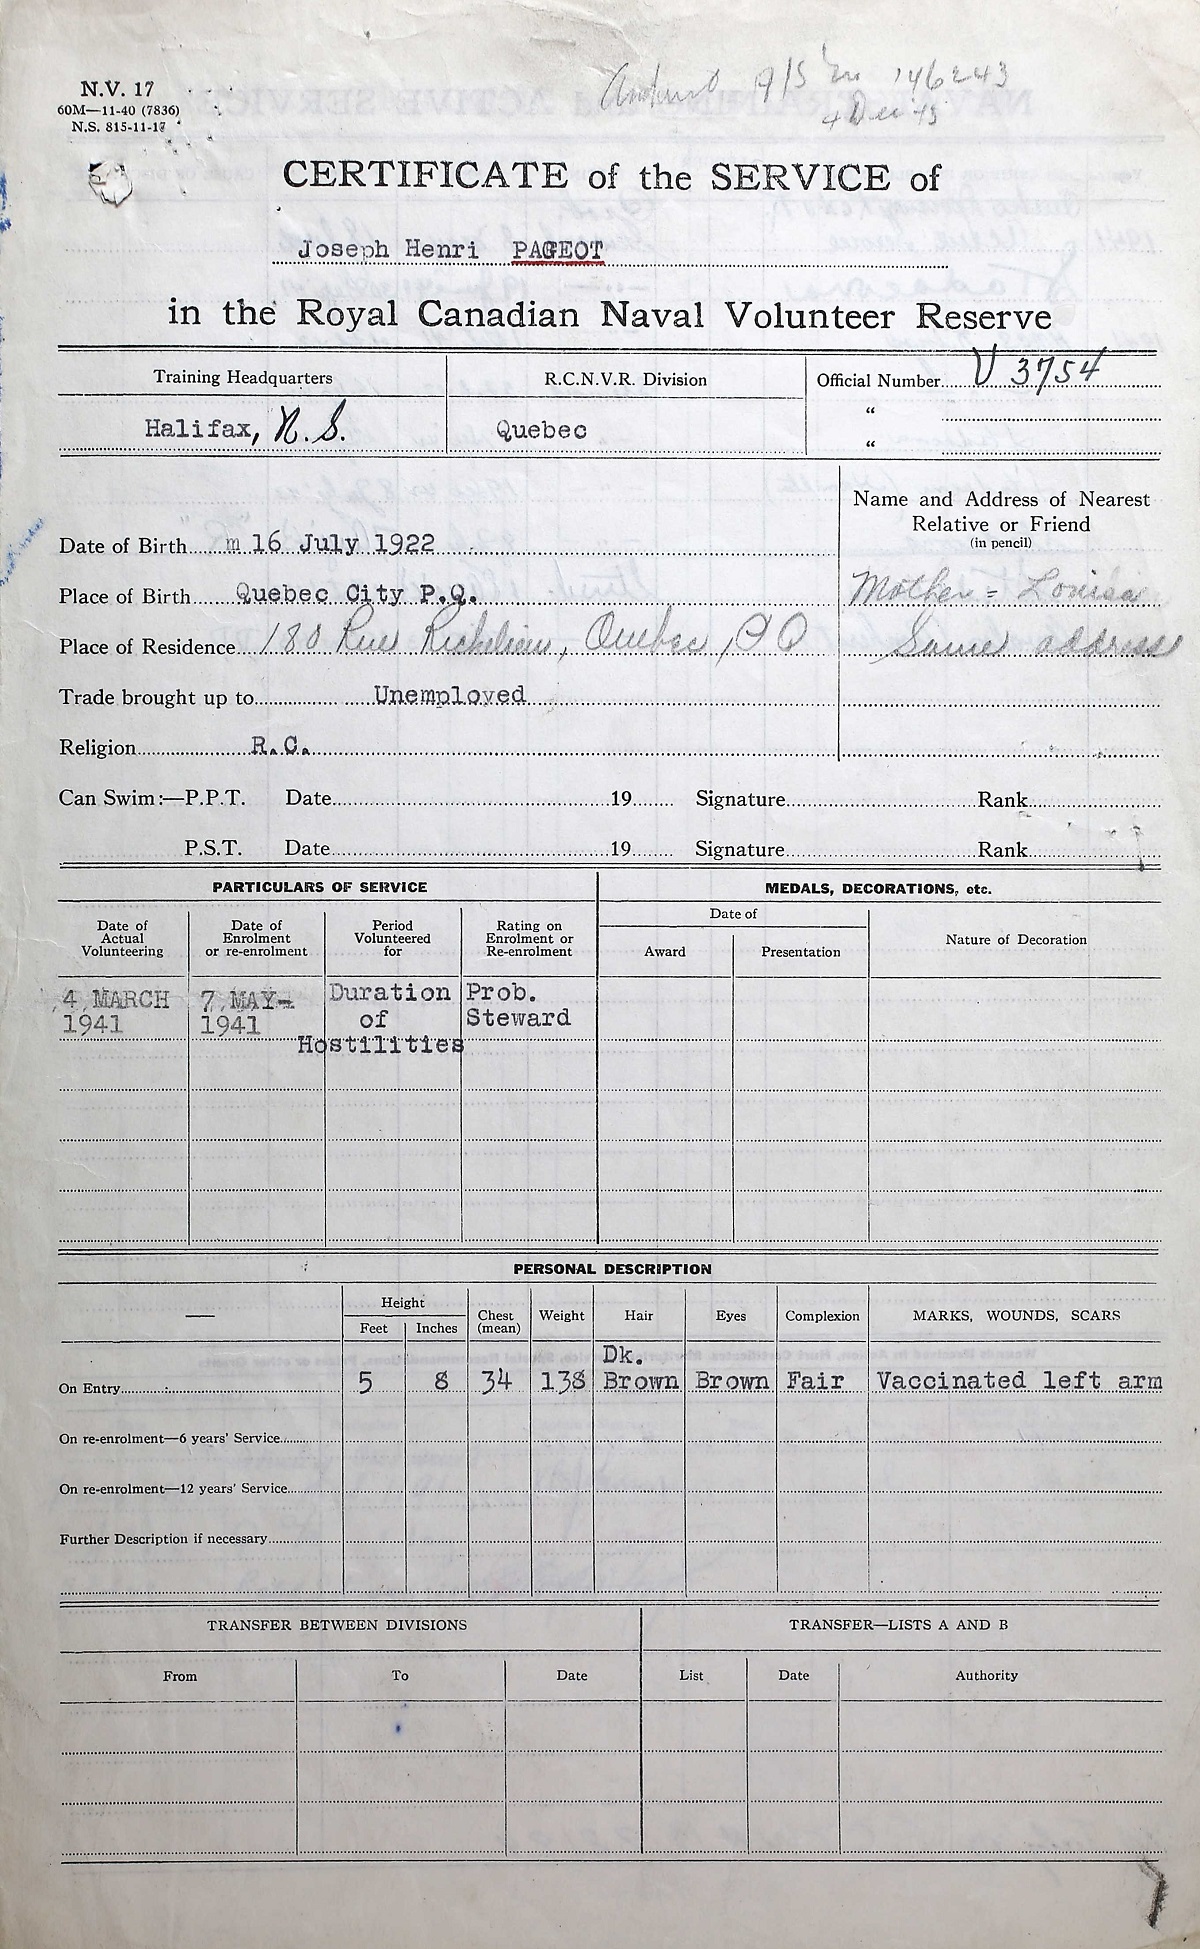 N.V. 17
60M—11-40 (7836)
N.S. 815-11-17
146243
4 Dec 45
CERTIFICATE of the SERVICE of
Joseph Henri PAGEOT
in the Royal Canadian Naval Volunteer Reserve
Training Headquarters R.C.N.V.R. Division Official Number V 3754
Halifax, N.S. Quebec “
“
Name and Address of Nearest
Relative or Friend
(in pencil)
Date of Birth 16 July 1922
Place of Birth Quebec City P.Q. Mother = Louisa
Place of Residence 180 Rue Richelieu, Quebec, PQ Same address
Trade brought up to Unemployed
Religion R.C.
Can Swim:—P.P.T. Date 19 Signature Rank
P.S.T. Date 19 Signature Rank
PARTICULARS OF SERVICE MEDALS, DECORATIONS, etc.
Date of Actual Volunteering Date of Enrolment or re-enrolment Period Volunteered for Rating on Enrolment or Re-enrolment Date of Nature of Decoration
Award Presentation
4 MARCH 7 MAY- Duration Prob.
1941 1941 of Steward
Hostilities
PERSONAL DESCRIPTION
— Height Chest (mean) Weight Hair Eyes Complexion MARKS, WOUNDS, SCARS
Feet Inches
Dk.
On Entry 5 8 34 138 Brown Brown Fair Vaccinated left arm
On re-enrolment—6 years' Service
On re-enrolment—12 years' Service
Further Description if necessary
TRANSFER BETWEEN DIVISIONS TRANSFER—LISTS A AND B
From To Date List Date Authority